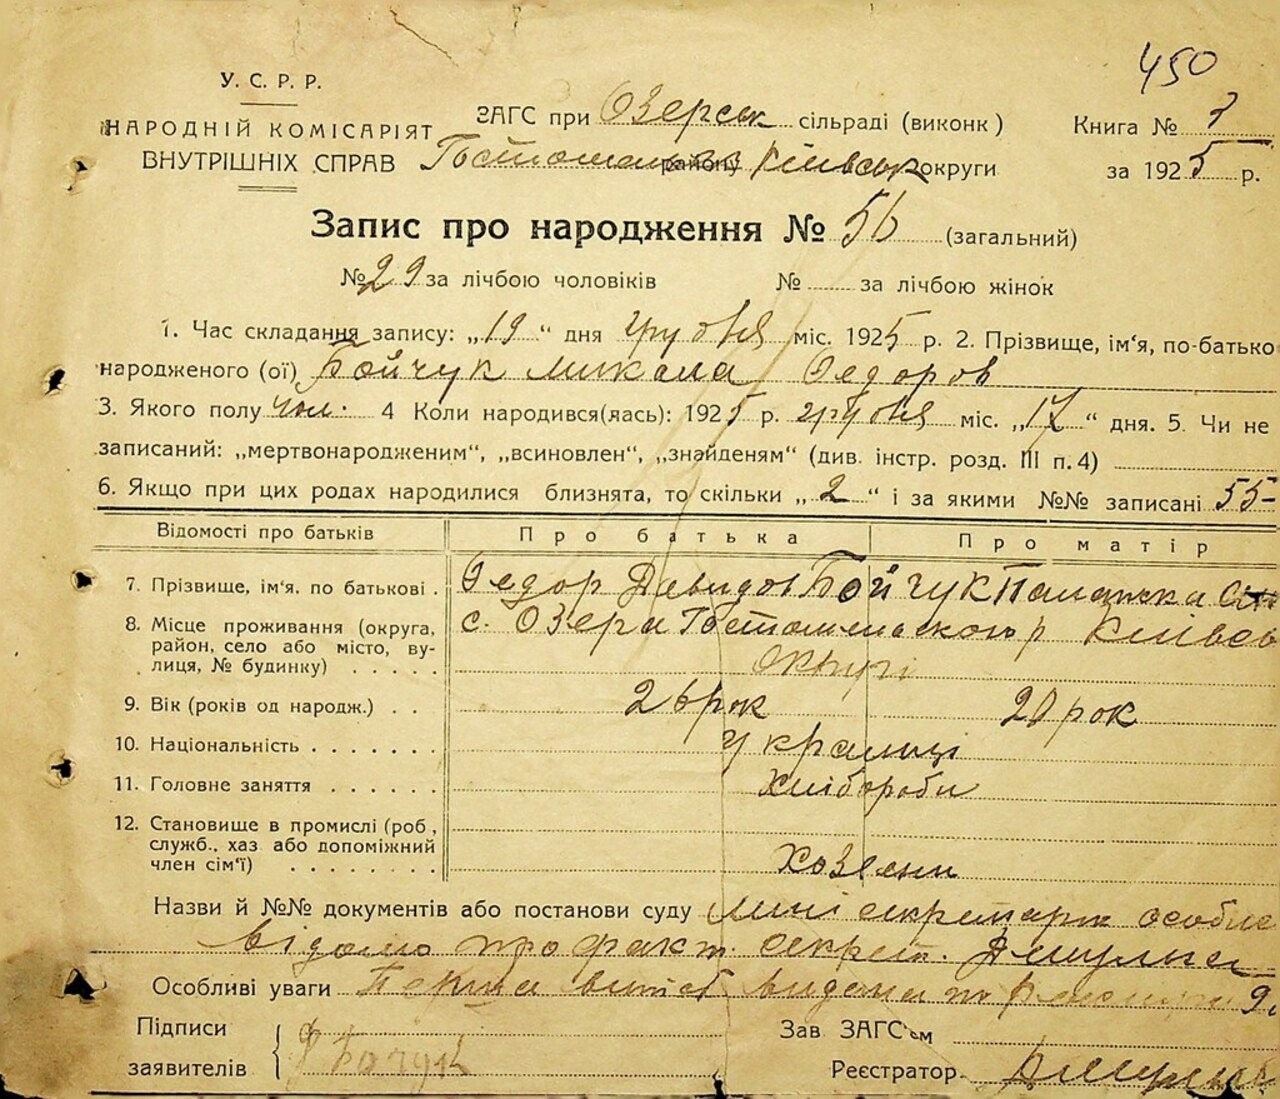 450
У. С. Р. Р.
НАРОДНІЙ КОМІСАРІЯТ
ВНУТРІШНІХ СПРАВ
ЗАГС при Озерськ сільраді (виконк)
району Київськ округи
Книга №
за 1925 р.
Запис про народження № 56 (загальний)
№ 29 за лічбою чоловіків № за лічбою жінок
1. Час складання запису: „19“ дня грудня міс. 1925 р. 2. Прізвище, ім'я, по-батько
народженого (ої) Бойчук Микола Федоров
3. Якого полу чол. 4 Коли народився(лась): 1925 р. грудня міс. „17“ дня. 5. Чи не
записаний: „мертвонародженим“, „всиновлен“, „знайденям“ (див. інстр. розд. III п. 4)
6. Якщо при цих родах народилися близнята, то скільки „2“ і за якими №№ записані 55-
Відомості про батьків Про батька Про матір
7. Прізвище, ім'я, по батькові. Федор Давидов Бойчук Палажка
8. Місце проживання (округа, с. Озера Гостомельского р Київсь
район, село або місто, ву-
лиця, № будинку) округі
9. Вік (років од народж.) 26 рок 20 рок
10. Національність українці
11. Головне заняття Хлібороби
12. Становище в промислі (роб.,
служб., хаз або допоміжний
член сім'ї) Хозяени
Назви й №№ документів або постанови суду Мині секретарю особис
відомо про факт. секрет.
Особливі уваги Перша видана
Підписи
заявителів
Зав. ЗАГС'ом
Реєстратор